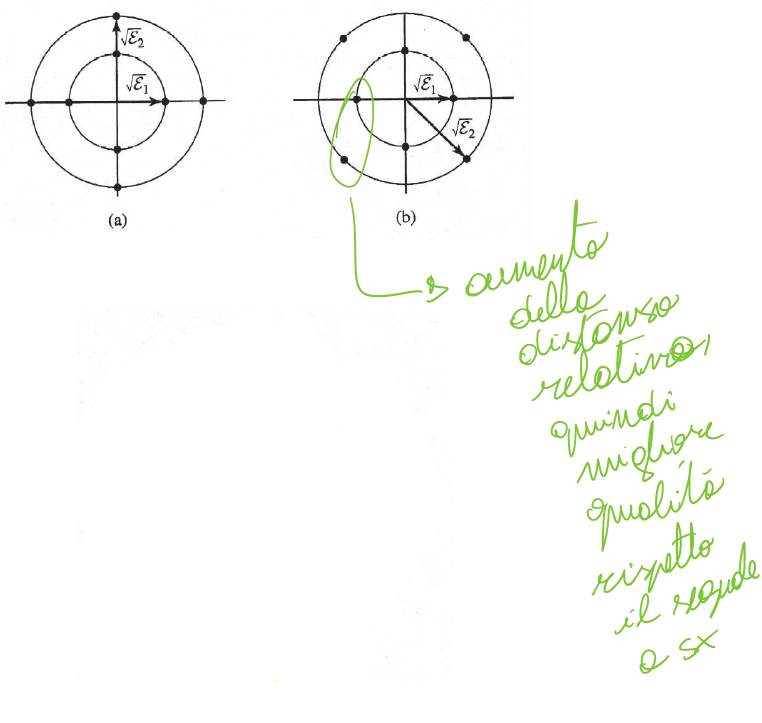 √ℰ₂
√ℰ₁
(a)
√ℰ₁
√ℰ₂
(b)
aumento
della
distanza
relativa,
quindi
migliore
qualità
rispetto
il
a sx